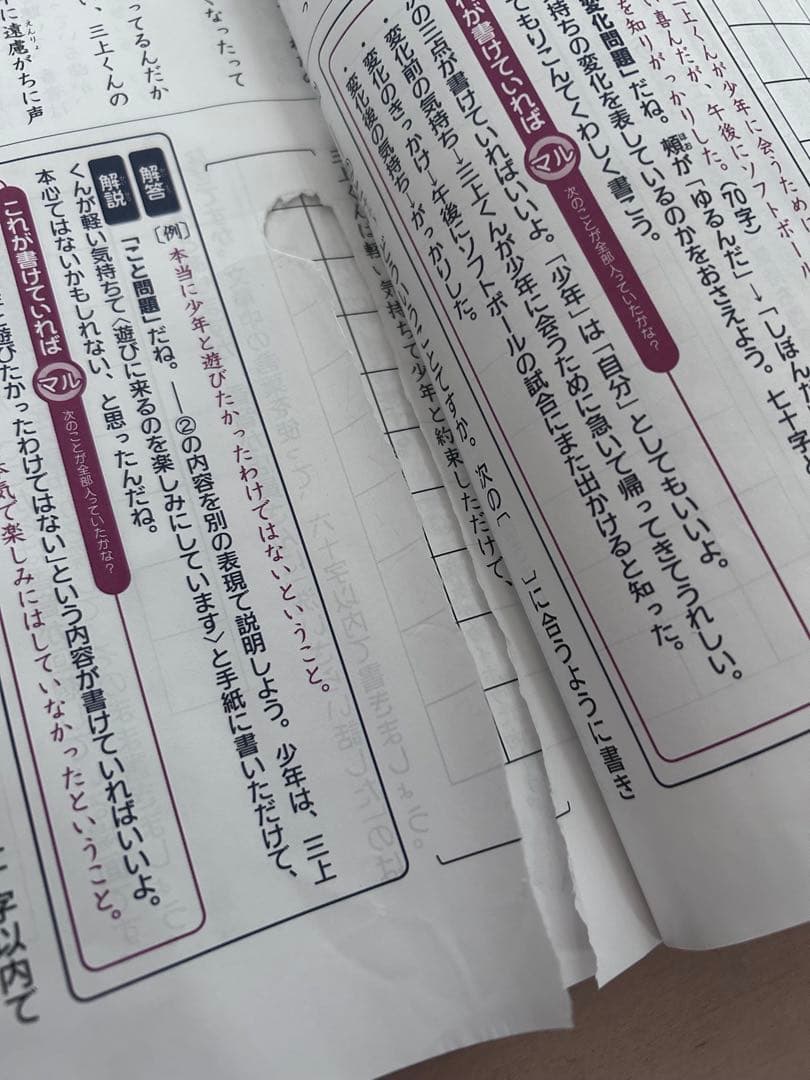 上くんが少年に会うため
喜んだが、午後にソフトボー
を知りがっかりした。(70字)
変化問題」だね。頰が「ゆるんだ」→「しぼん
持ちの変化を表しているのかをおさえよう。七十字
てもりこんでくわしく書こう。
が書けていれば マル 次のことが全部入っていたかな?
の三点が書けていればいいよ。「少年」は「自分」としてもいいよ。
・変化前の気持ち→三上くんが少年に会うために急いで帰ってきてうれしい。
・変化のきっかけ→午後にソフトボールの試合にまた出かけると知った。
・変化後の気持ち→がっかりした。
どういうことですか。次の〔 〕に合うように書き
三上くんは軽い気持ちで少年と約束しただけで、
解答
[例] 本当に少年と遊びたかったわけではないということ。
解説
「こと問題」だね。——②の内容を別の表現で説明しよう。少年は、三上
くんが軽い気持ちで〈遊びに来るのを楽しみにしています〉と手紙に書いただけで、
本心ではないかもしれない、と思ったんだね。
これが書けていれば マル 次のことが全部入っていたかな?
遊びたかったわけではない」という内容が書けていればいいよ。
本気で楽しみにはしていなかったということ。
字以内で
なったって
、三上くんの
ってるんだか
に遠慮がちに声
えんりょ